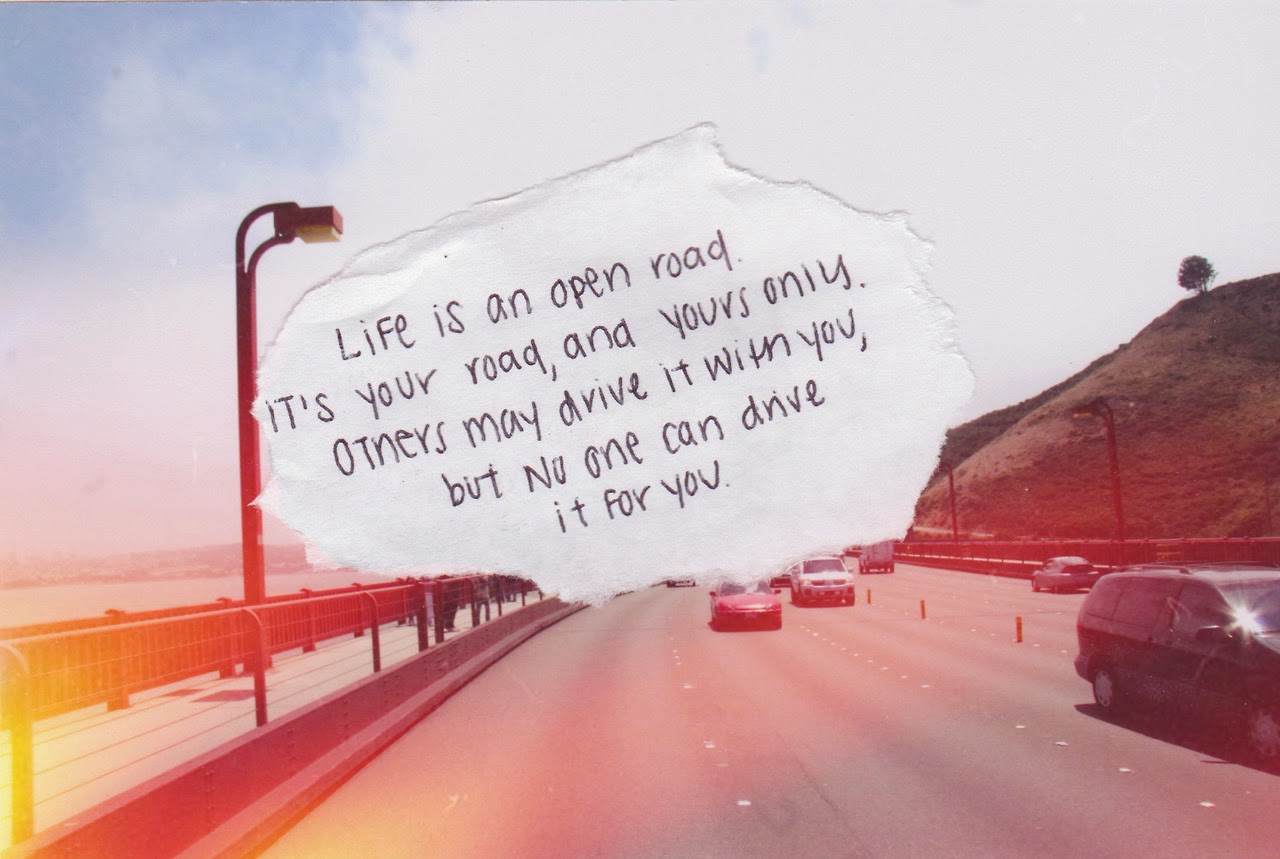 Life is an open road.
IT'S your road, and yours only.
OTHERS may drive it with you,
but NO one can drive
it for you.